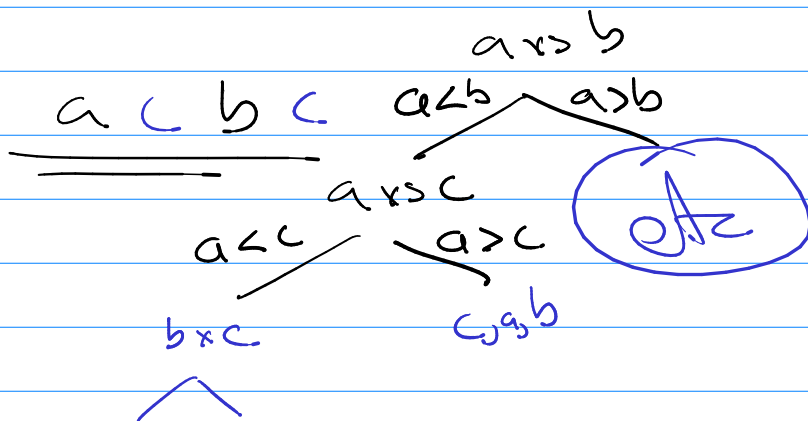 a vs b
a c b c
a<b a>b
a vs c
etc
a<c a>c
b × c
c, a, b